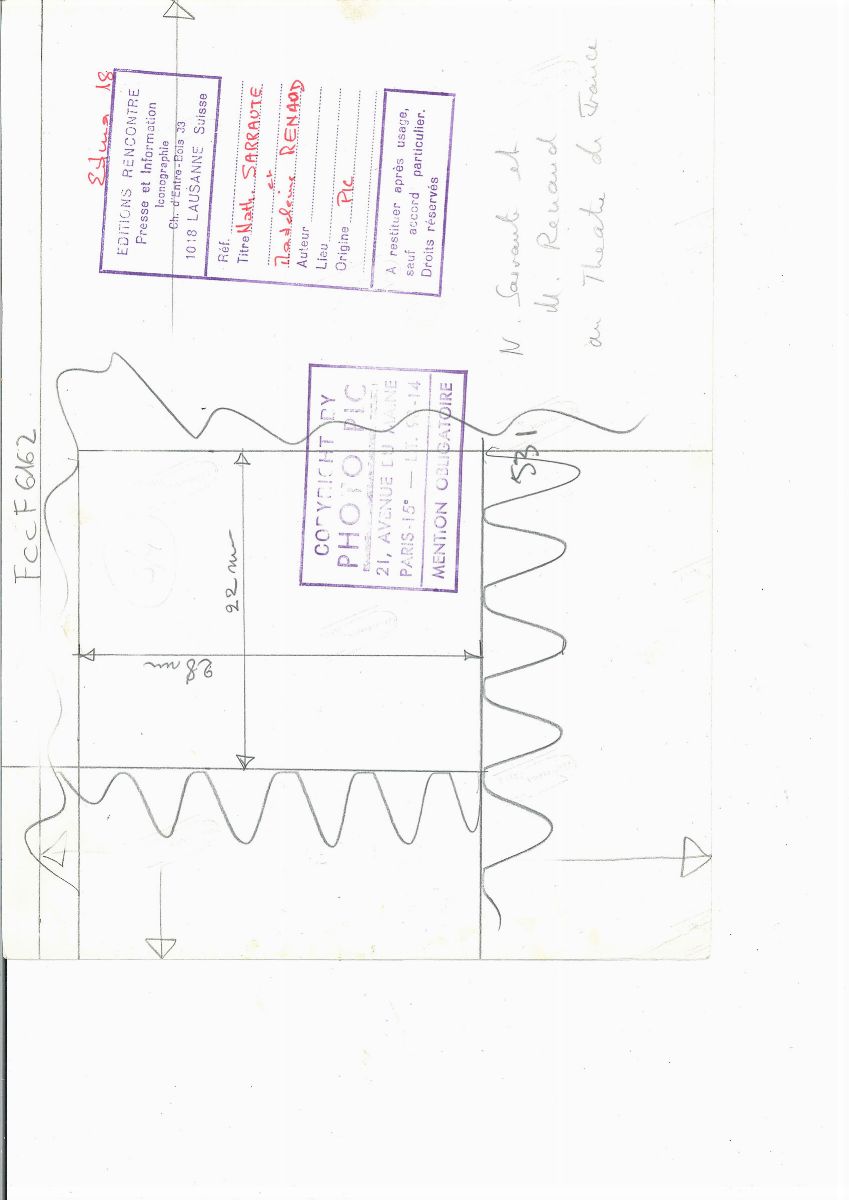 FccF6162
EDITIONS RENCONTRE
Presse et Information
Iconographie
Ch. d'Entre-Bois 33
1018 LAUSANNE Suisse
Réf.
Titre Nath. SARRAUTE
et
Madeleine RENAUD
Auteur
Lieu
Origine PIC
A restituer après usage,
sauf accord particulier.
Droits réservés
N. Sarraute et
M. Renaud
au Theatre de France
COPYRIGHT BY
PHOTO PIC
21, AVENUE DU MAINE
PARIS-15e — -14
MENTION OBLIGATOIRE
531
22 mm
28 mm